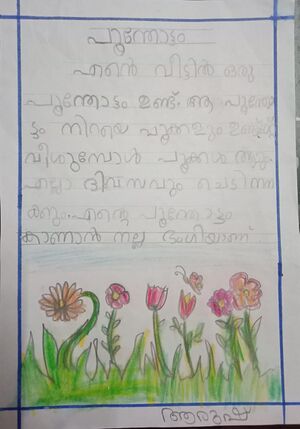 പൂന്തോട്ടം
എന്റെ വീട്ടിൽ ഒരു
പൂന്തോട്ടം ഉണ്ട്. ആ പൂന്തോ
ട്ടം നിറയെ പൂക്കളും ഉണ്ട്
വീശുമ്പോൾ പൂക്കൾ ആടും.
എല്ലാ ദിവസവും ചെടി നന
ക്കും. എന്റെ പൂന്തോട്ടം
കാണാൻ നല്ല ഭംഗിയാണ്
ആരുഷ